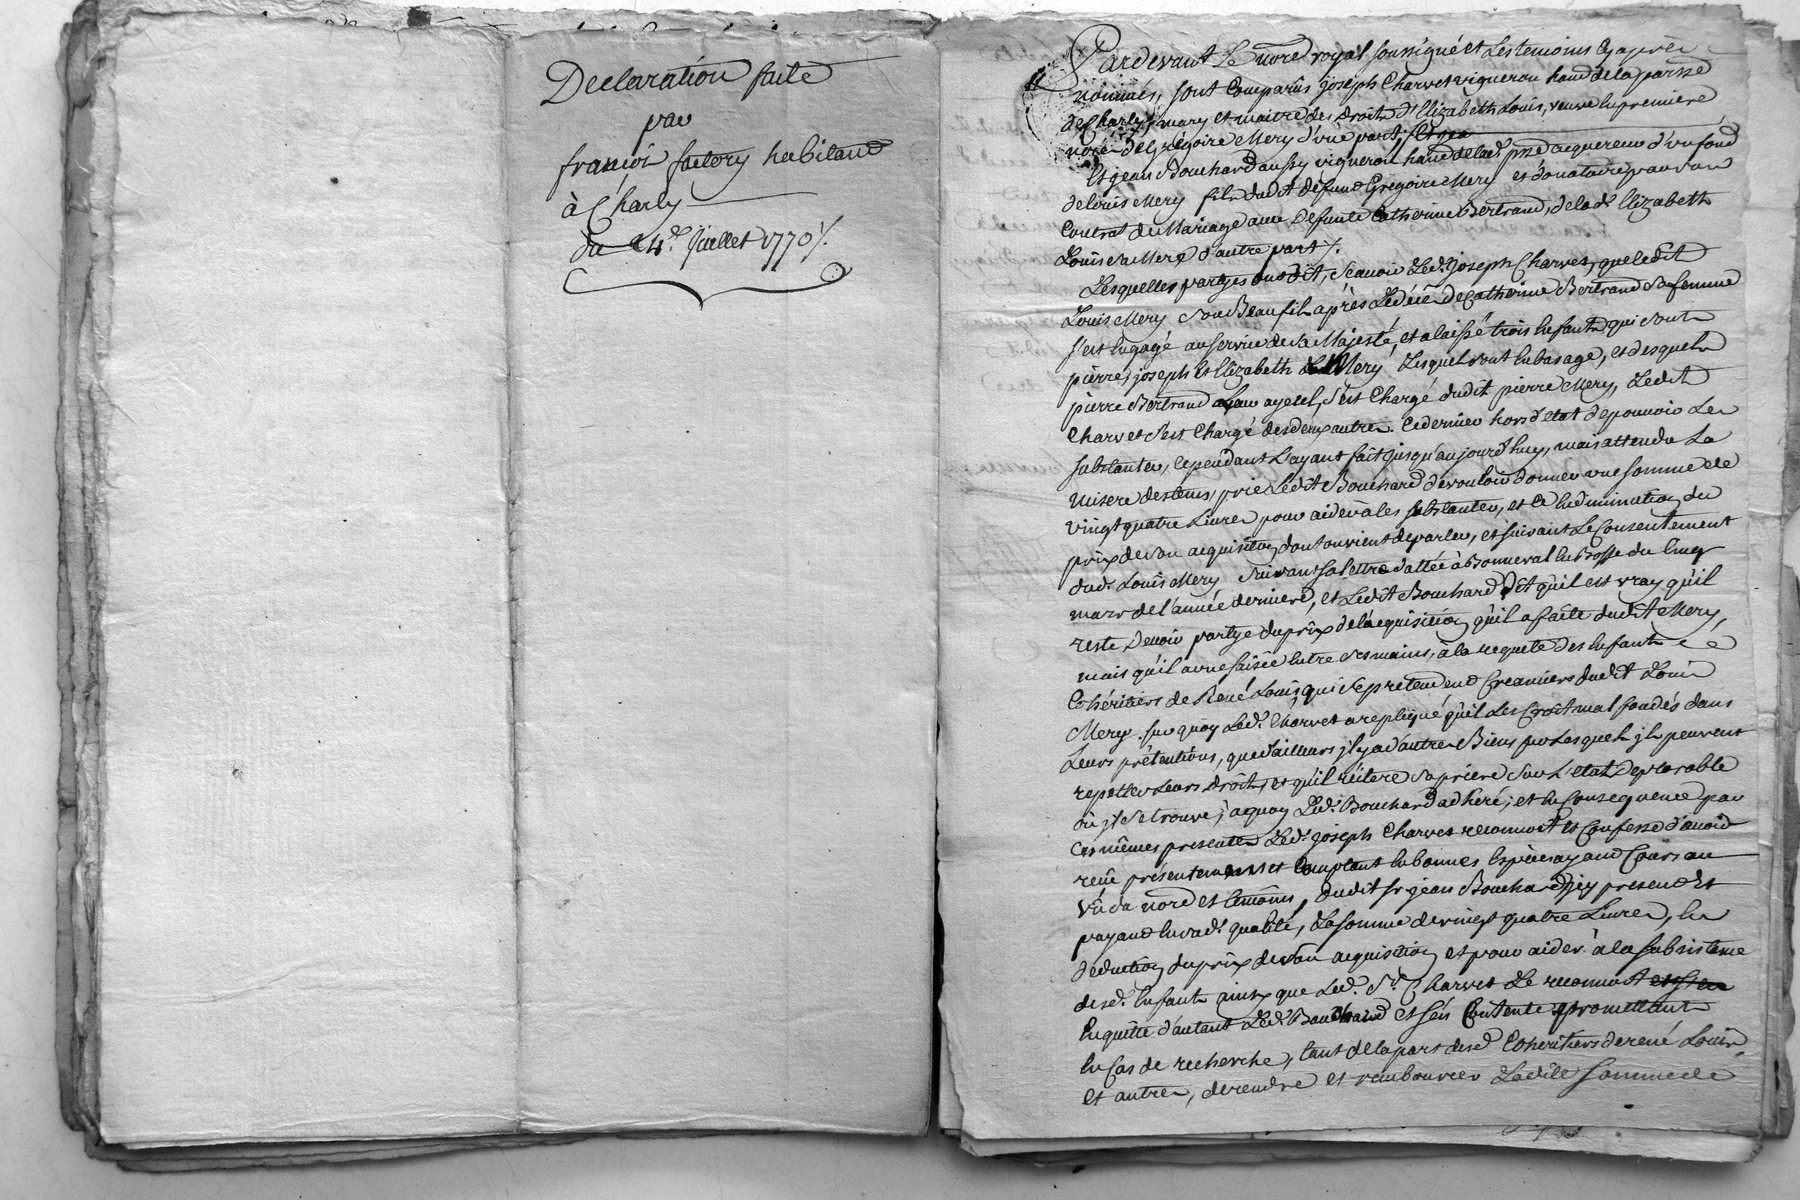 Declaration faite
par
françois factory habitant
à Charly
du 24e. Juillet 1770 /.
Pardevant Le nore. royal soussigné et Les temoins Cy après
nommés, sont Comparûs joseph Charvet vigneron hant de la parsse
de Charly, mary et maitre des Droits d'Elizabeth Louis, veuve En première
noce de Grégoire Mery d'une part,
Et jean Bouchard aussy vigneron hant de lad. psse acquereur d'un fond
de Louis Mery fils dudit défunt Gregoire Mery et donataire par son
Contrat de Mariage avec Defunte Catherine Bertrand, de lade. Elizabeth
Louis sa Mere d'autre part /.
Lesquelles partyes ont dit, Scavoir Led. joseph Charvet, que ledit
Louis Mery son Beaufils après Le décés de Catherine Bertrand sa femme
s'est Engagé au service de sa Majesté, et a laissé trois Enfants qui sont
pierre, joseph et Elizabeth Mery Lesquels sont En bas age, et desquels
pierre Bertrand Leur ayeul, s'est Chargé dudit pierre Mery, Ledit
Charvet s'est Chargé des deux autres. Ce dernier hors d'etat de pouvoir Les
substanter, Cependant L'ayant fait jusqu'aujourd'huy, mais attendu La
misere des tems, prie Ledit Bouchard de vouloir donner une somme de
vingt quatre Livres pour aider à les substanter, et Ce En diminution du
prix de son acquisition dont on vient de parler, et suivant Le Consentement
dud. Louis Mery suivant sa lettre dattée à Bonneval En Bosse du Cinq
mars de l'année derniere, et Ledit Bouchard Dit qu'il est vray qu'il
reste Devoir partye du prix de l'acquisition qu'il a faite dudit Mery,
mais qu'il a une saisie Entre ses mains, à la requete des Enfants
Cohéritiers de René Louis, qui se pretendent Creanciers dudit Louis
Mery. sur quoy Led. Charvet a repliqué qu'il Les Croit mal fondés dans
Leurs prétentions, que d'ailleurs jl y a d'autres Biens sur Lesquels jls peuvent
repetter Leurs Droits, et qu'il réitere sa priere sur L'etat deplorable
où jl se trouve; à quoy Led. Bouchard adhéré; et En Consequence par
Ces mêmes presentes Led. joseph Charvet reconnoit et Confesse d'avoir
reçû présentement et Comptant En bonnes Especes ayant Cours au
vû du nore et temoins, dudit sr jean Bouchard jcy present et
payant En sad. qualité, La somme de vingt quatre Livres, En
deduction du prix de son acquisition et pour aider à la subsistance
desd. Enfants ainsy que Led. sr. Charvet Le reconnoit
En quitte d'autant Led. Bouchard et s'en Contente promettant
En Cas de recherche, tant de la part desd Cohéritiers de rené Louis,
et autres, de rendre et rembourser Ladite somme de